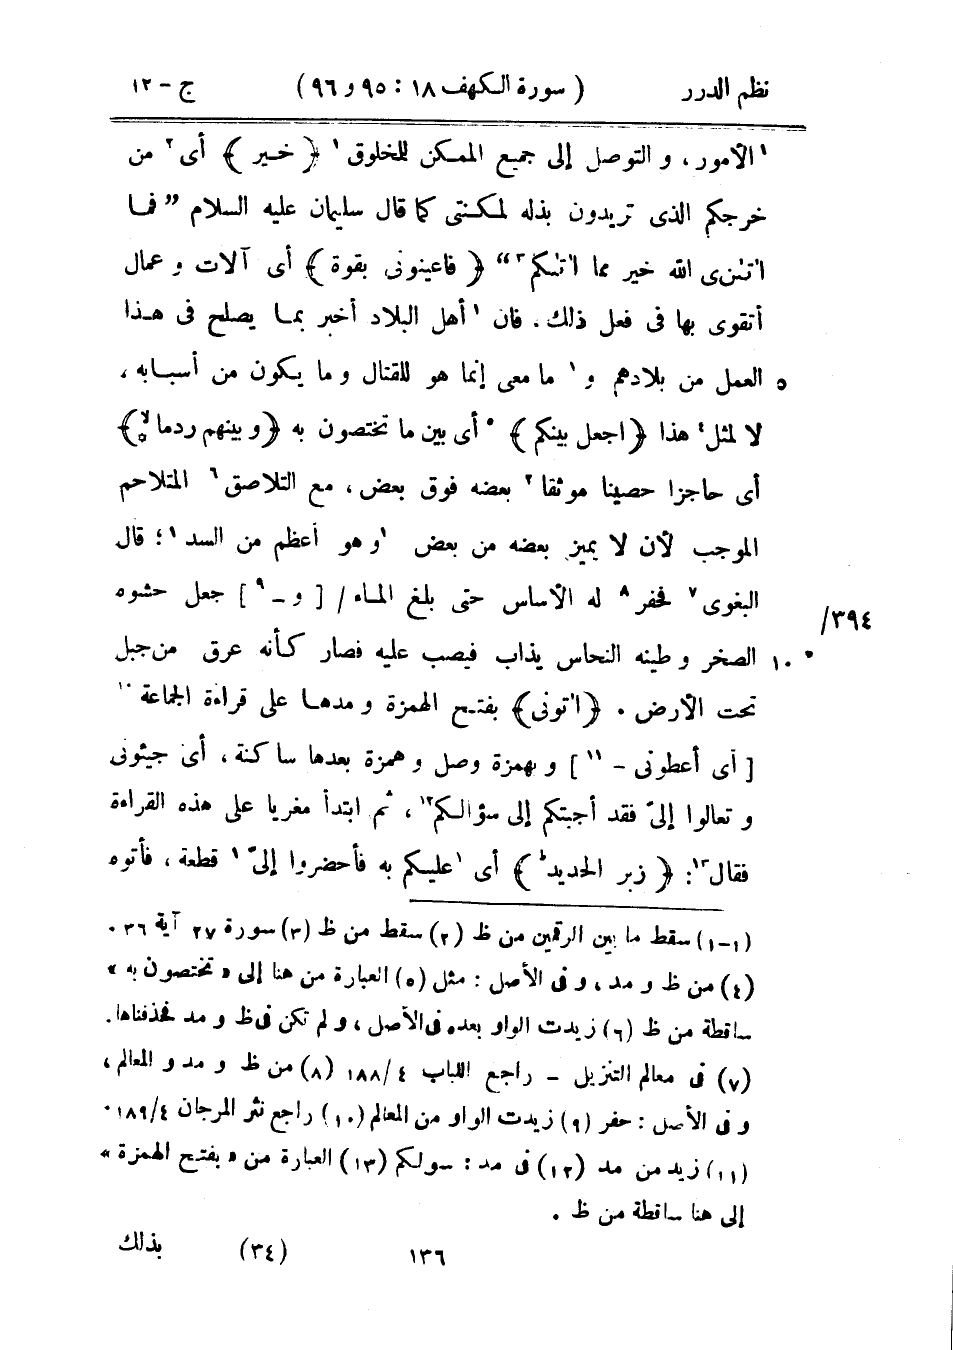 نظم الدرر ( سورة الكهف ١٨ : ٩٥ و ٩٦ ) ج - ١٢
١ الأمور ، و التوصل إلى جميع الممكن للمخلوق ١ ﴿ خير ﴾ أى ٢ من
خرجكم الذى تريدون بذله لمكنتى كما قال سليمان عليه السلام ” فما
اٰتٰىنۦ ى الله خير مما اٰتٰىكم ٣ “ ﴿ فاعينونى بقوة ﴾ أى آلات و عمال
أتقوى بها فى فعل ذلك . فان ١ أهل البلاد أخبر بما يصلح فى هذا
٥ العمل من بلادهم و ١ ما معى إنما هو للقتال و ما يكون من أسبابه ،
لا لمثل ٤ هذا ﴿ اجعل بينكم ﴾ ٥ أى بين ما تختصون به ﴿ و بينهم ردما لا ٥ ﴾
أى حاجزا حصينا موثقا ٢ بعضه فوق بعض ، مع التلاصق ٦ المتلاحم
الموجب لأن لا يميز بعضه من بعض ١ و هو أعظم من السد ١ ؛ قال
البغوى ٧ فحفر ٨ له الأساس حتى بلغ الماء / [ و - ٩ ] جعل حشوه
/٣٩٤
١٠ الصخر و طينه النحاس يذاب فيصب عليه فصار كأنه عرق من جبل
تحت الأرض . ﴿ اٰتونى ﴾ بفتح الهمزة و مدها على قراءة الجماعة ١٠
[ أى أعطونى - ١١ ] و بهمزة وصل و همزة بعدها ساكنة ، أى جيئونى
و تعالوا إلىّ فقد أجبتكم إلى سؤالكم ١٢ ، ثم ابتدأ مغريا على هذه القراءة
فقال ١٣ : ﴿ زبر الحديد ط ﴾ أى ١ عليكم به فأحضروا إلىّ ١ قطعة ، فأتوه
(١-١) سقط ما بين الرقمين من ظ (٢) سقط من ظ (٣) سورة ٢٧ آية ٣٦ .
(٤) من ظ و مد ، و فى الأصل : مثل (٥) العبارة من هنا إلى « تختصون به »
ساقطة من ظ (٦) زيدت الواو بعده فى الأصل ، و لم تكن فى ظ و مد فحذفناها .
(٧) فى معالم التنزيل - راجع اللباب ٤ / ١٨٨ (٨) من ظ و مد و المعالم ،
و فى الأصل : حفر (٩) زيدت الواو من المعالم (١٠) راجع نثر المرجان ٤ / ١٨٩ .
(١١) زيد من مد (١٢) فى مد : سولكم (١٣) العبارة من « بفتح الهمزة »
إلى هنا ساقطة من ظ .
١٣٦ (٣٤) بذلك